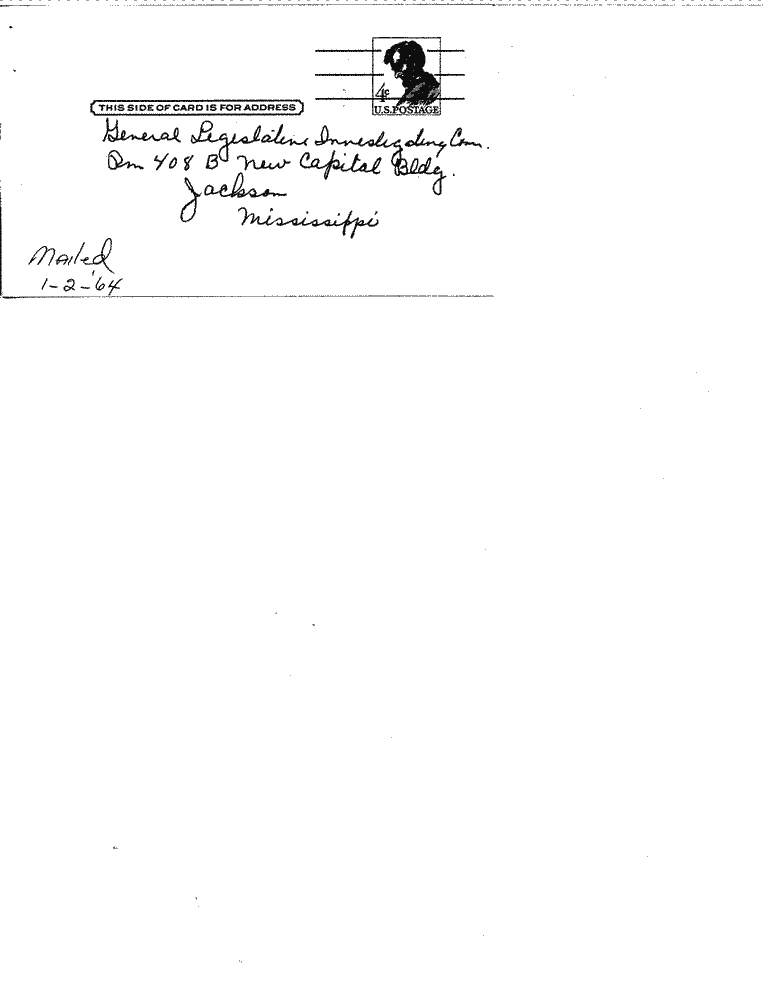 4¢
U.S. POSTAGE
THIS SIDE OF CARD IS FOR ADDRESS
General Legislative Investigating Com.
Rm 408 B New Capital Bldg.
Jackson
Mississippi
Mailed
1-2-'64